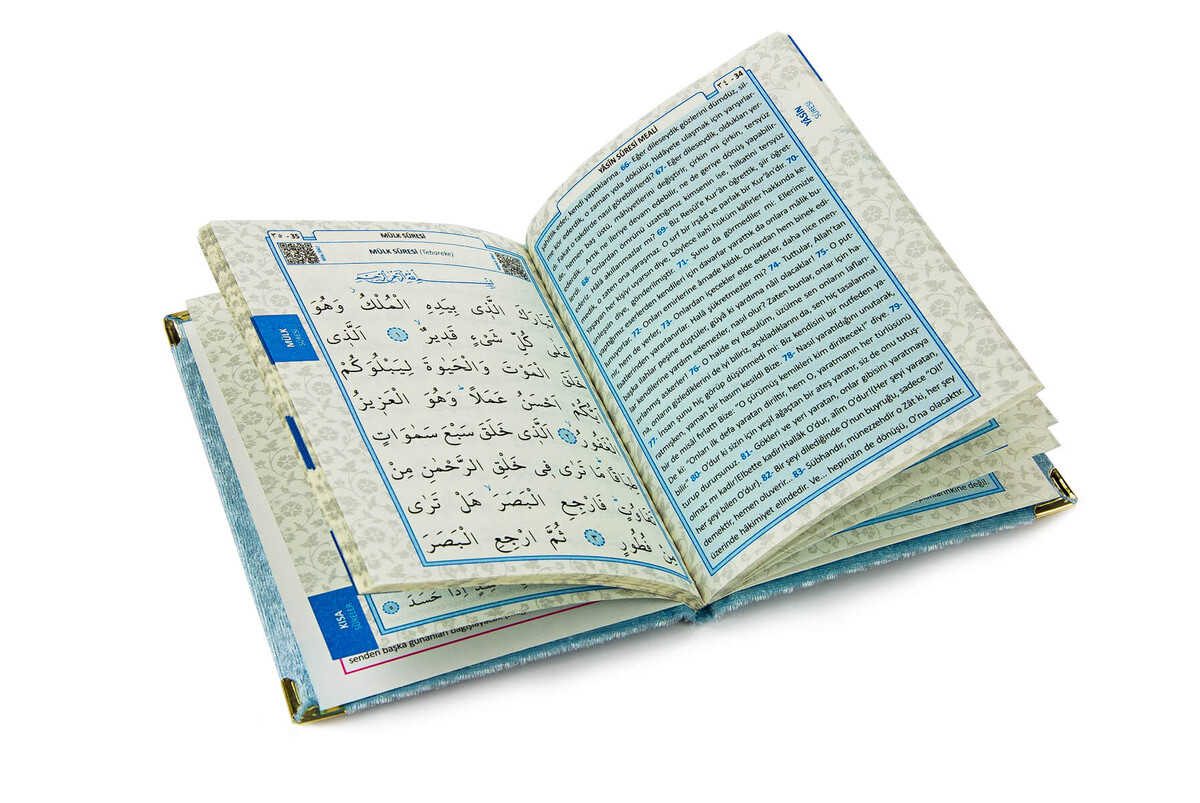 ٣٤ - 34
YÂSİN
SÛRESİ
YÂSİN SÛRESİ MEALİ
eder, kendi yaptıklarına. 66- Eğer dileseydik gözlerini dümdüz, sil-
me kör ederdik, o zaman yola dökülür, hidâyete ulaşmak için yarışırlar-
di. Fakat o takdirde nasıl görebilirlerdi? 67- Eğer dileseydik, oldukları yer-
de, hemen baş üstü, mâhiyetlerini değiştirir, çirkin mi çirkin, tersyüz
Artık ne ileriye devam edebilir, ne de geriye dönüş yapabilir-
lerdi. 68- Onlardan ömrünü uzattığımız kimsenin ise, hilkatini tersyüz
ederiz. Hâlâ akıllanmazlar mı? 69- Biz Resûl'e Kur'ân öğrettik, şiir öğret-
medik, o zaten ona yaraşmaz. O sırf bir irşâd ve parlak bir Kur'ân'dır. 70-
Yaşayan her kişiyi uyarsın diye, böylece ilahî hüküm kâfirler hakkında ke-
sinleşsin diye, gönderilmiştir. 71- Şunu da görmediler mi: Ellerimizle
yaptığımız eserlerden kendileri için davarlar yarattık da onlara mâlik bu-
lunuyorlar. 72- Onları emirlerine âmade kıldık. Onlardan hem binek edi-
nir, hem de yerler. 73- Onlardan içecekler elde ederler, daha nice men-
faatlerinden yararlanırlar. Halâ şükretmezler mi? 74- Tuttular, Allah'tan
başka ilahlar peşine düştüler, gûyâ ki yardıma nâil olacaklar! 75- O put-
lar kendilerine yardım edemezler, nasıl olur? Zaten bunlar, onlar için ha-
zırlanmış askerler! 76- O halde ey Resulüm, üzülme sen onların lafları-
na, onların gizlediklerini de iyi biliriz, açıkladıklarını da, sen hiç tasalanma!
77- İnsan şunu hiç görüp düşünmedi mi: Biz kendisini bir nutfeden ya-
ratmışken, yaman bir hasım kesildi Bize. 78- Nasıl yaratıldığını unutarak,
bir de misâl fırlattı Bize: "O çürümüş kemikleri kim diriltecek!" diye. 79-
De ki: "Onları ilk defa yaratan diriltir, hem O, yaratmanın her türlüsünü
bilir." 80- O'dur ki sizin için yeşil ağaçtan bir ateş yaratır, siz de onu tutuş-
turup durursunuz. 81- Gökleri ve yeri yaratan, onlar gibisini yaratmaya
olmaz mı kadir!Elbette kadir!Hallâk O'dur, alîm O'dur!(Her şeyi yaratan,
her şeyi bilen O'dur). 82- Bir şeyi dilediğinde O'nun buyruğu, sadece "Ol!"
demektir, hemen oluverir... 83- Sübhandır, münezzehdir O Zât ki, her şey
üzerinde hâkimiyet elindedir. Ve... hepinizin de dönüşü, O'na olacaktır.
٣٥ - 35
MÜLK SÛRESİ
MÜLK SÛRESİ (Tebareke)
بِسْمِ اللّٰهِ الرَّحْمٰنِ الرَّحِيمِ
تَبَارَكَ الَّذِى بِيَدِهِ الْمُلْكُ وَهُوَ
عَلٰى كُلِّ شَىْءٍ قَدِيرٌ ﴿١﴾ اَلَّذِى
خَلَقَ الْمَوْتَ وَالْحَيٰوةَ لِيَبْلُوَكُمْ
اَيُّكُمْ اَحْسَنُ عَمَلًا وَهُوَ الْعَزِيزُ
الْغَفُورُ ﴿٢﴾ اَلَّذِى خَلَقَ سَبْعَ سَمٰوَاتٍ
طِبَاقًا مَا تَرٰى فِى خَلْقِ الرَّحْمٰنِ مِنْ
تَفَاوُتٍ فَارْجِعِ الْبَصَرَ هَلْ تَرٰى
مِنْ فُطُورٍ ﴿٣﴾ ثُمَّ ارْجِعِ الْبَصَرَ
MÜLK
SÛRESİ
اِذَا حَسَدَ
KISA
SÛRELER
senden başka günahları bağışlayacak
değil.